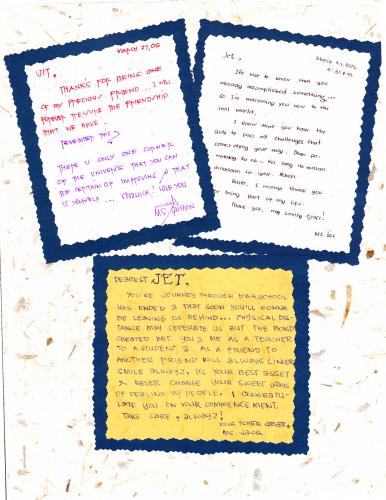 MARCH 27, 06
JET,
THANKS FOR BEING ONE
OF MY PRECIOUS FRIEND... I WILL
FOREVER TREASURE THE FRIENDSHIP
THAT WE HAVE.
REMEMBER THIS:
THERE IS ONLY ONE CORNER
OF THE UNIVERSE THAT YOU CAN
BE CERTAIN OF IMPROVING & THAT
IS YOURSELF... GOODLUCK! LOVE YOU
MS.
March 27, 2006
Jet,
It's nice to know that you
already accomplished something...
so I'm welcoming you now to the
real world.
I know that you have the
guts to pass all challenges that
comes along your way. Then
long
in yours.
I wanna thank you
for being part of my life.
Thank you, my loving
Ms.
DEAREST JET,
YOU'RE JOURNEY THROUGH HIGHSCHOOL
HAS ENDED & THAT SOON YOU'LL GONNA
BE LEAVING US BEHIND... PHYSICAL DIS-
TANCE MAY SEPERATE US BUT THE BOND
CREATED BET. YOU & ME AS A TEACHER
TO A STUDENT & AS A FRIEND TO
ANOTHER FRIEND WILL ALWAYS LINGER
SMILE ALWAYZ, ITS YOUR BEST ASSET
& NEVER CHANGE YOUR SWEET WAYS
OF DEALING W/ PEOPLE. I CONGRATU-
LATE YOU ON YOUR COMMENCEMENT.
TAKE CARE, ALWAYZ!
YOUR TCHER 4EVER,
MS.